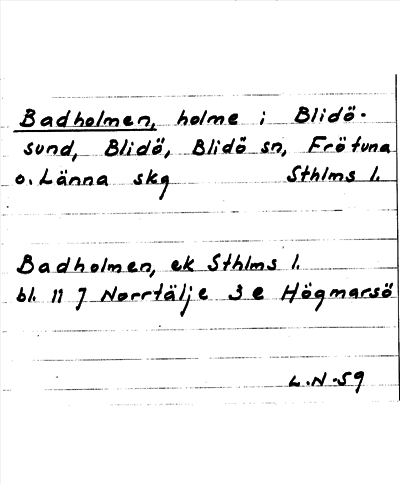 Badholmen, holme i Blidö-
sund, Blidö, Blidö sn, Frötuna
o. Länna skg Sthlms l.
Badholmen, ek Sthlms l.
bl. 11 7 Norrtälje 3 e Högmarsö
L.N-59